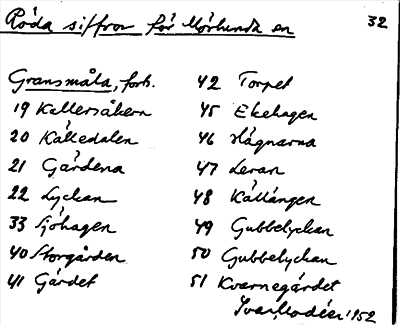 Röda siffror för Mörlunda en 32
Gransmåla, forts.
19 Källersåkern
20 Kålledalen
21 Gårdena
22 Lyckan
33 Sjöhagen
40 Storgården
41 Gärdet
42 Torpet
45 Ekehagen
46 Hägnarna
47 Leran
48 Källängen
49 Gubbelyckan
50 Gubbelyckan
51 Kvarnegärdet
Ivar Modéer 1952